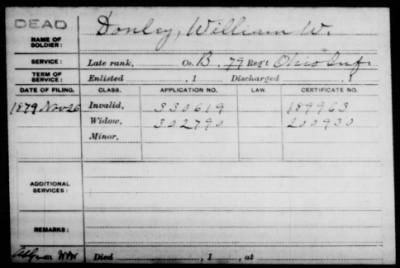 DEAD
NAME OF SOLDIER: Donley, William W.
SERVICE: Late rank, Co. B, 79 Reg't Ohio Inf.
TERM OF SERVICE: Enlisted , 1 Discharged , 1
DATE OF FILING. CLASS. APPLICATION NO. LAW. CERTIFICATE NO.
1879 Nov 26 Invalid, 330619 189963
Widow, 302790 200930
Minor,
ADDITIONAL SERVICES:
REMARKS:
Died , 1 , at